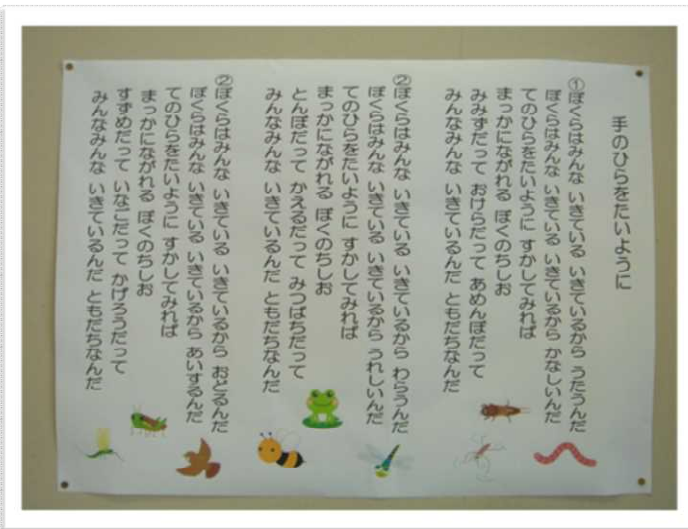 手のひらをたいように
①ぼくらはみんな いきている いきているから うたうんだ
ぼくらはみんな いきている いきているから かなしいんだ
てのひらをたいように すかしてみれば
まっかにながれる ぼくのちしお
みみずだって おけらだって あめんぼだって
みんなみんな いきているんだ ともだちなんだ
②ぼくらはみんな いきている いきているから わらうんだ
ぼくらはみんな いきている いきているから うれしいんだ
てのひらをたいように すかしてみれば
まっかにながれる ぼくのちしお
とんぼだって かえるだって みつばちだって
みんなみんな いきているんだ ともだちなんだ
②ぼくらはみんな いきている いきているから おどるんだ
ぼくらはみんな いきている いきているから あいするんだ
てのひらをたいように すかしてみれば
まっかにながれる ぼくのちしお
すずめだって いなごだって かげろうだって
みんなみんな いきているんだ ともだちなんだ